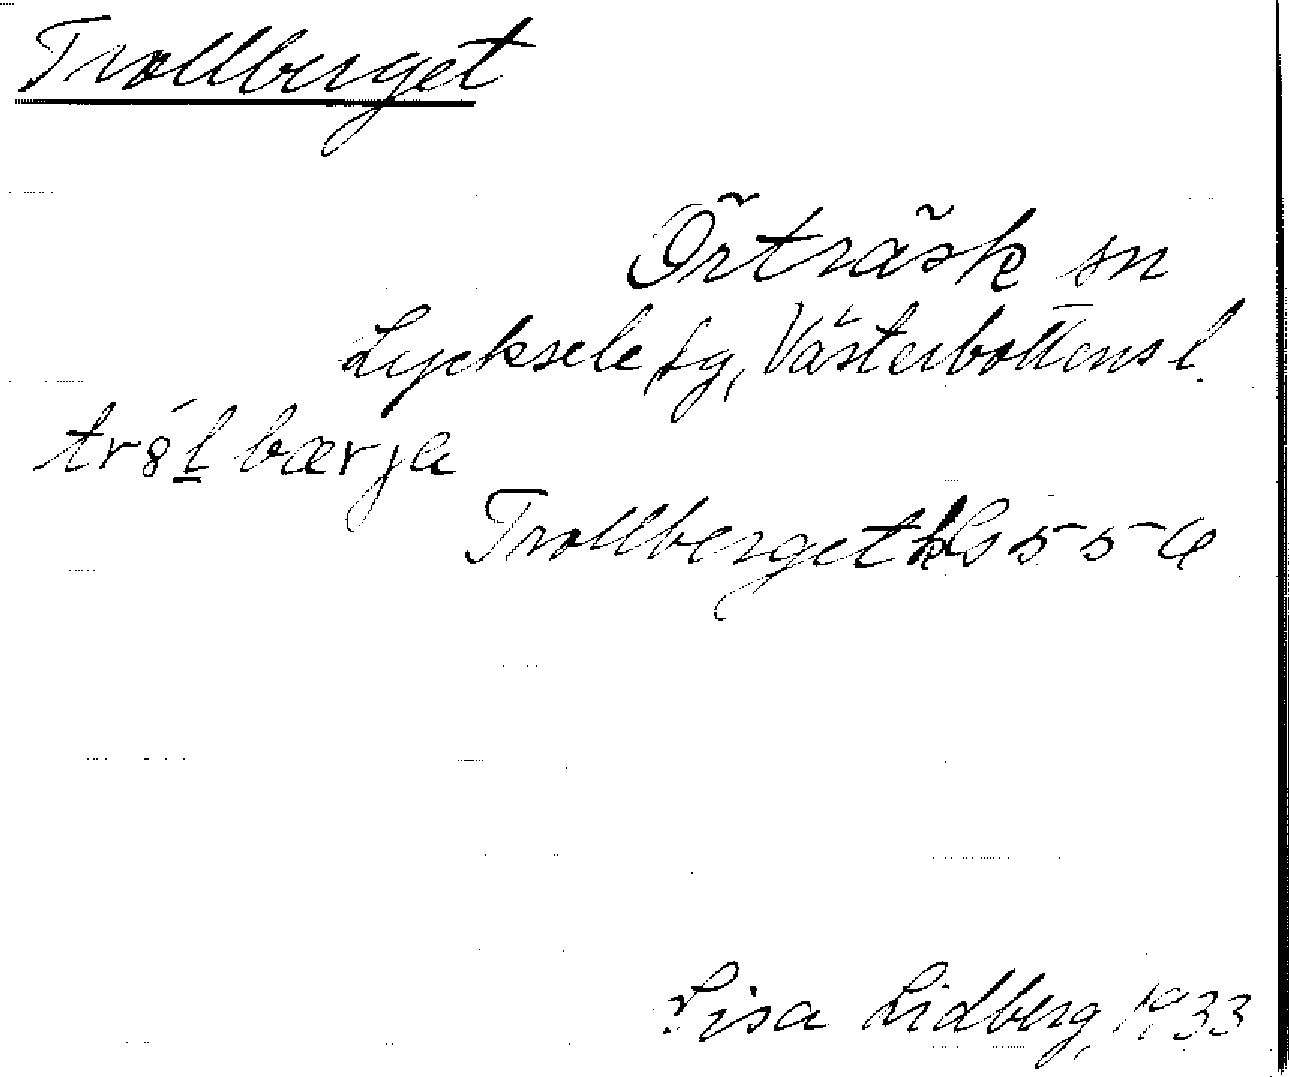 Trollberget
Örträsk sn
Lycksele lfg, Västerbottens l.
tr8́l bærja
Trollberget 556
Lisa Lidberg, 1933